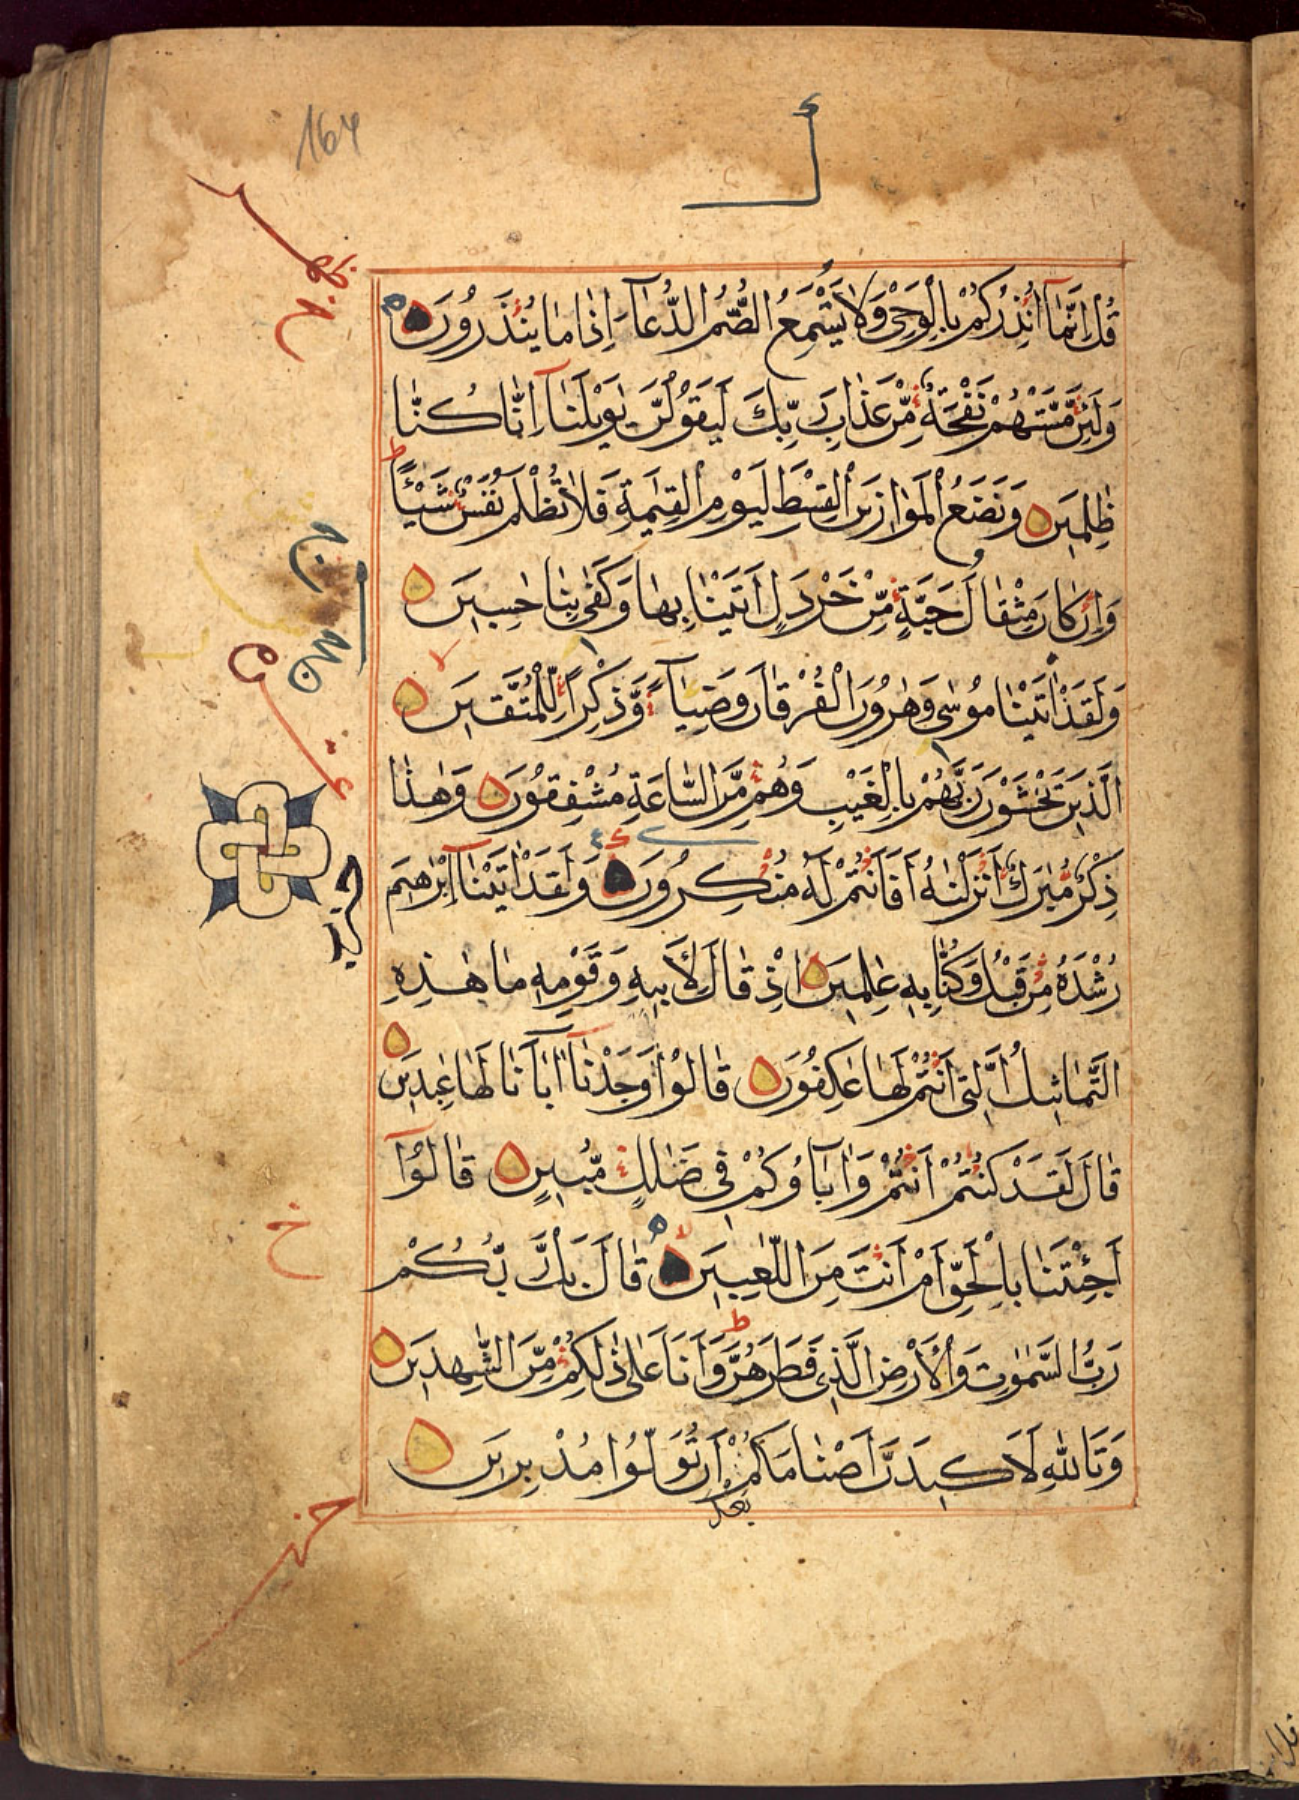 164
قُلْ اِنَّمَآ اُنْذِرُكُمْ بِالْوَحْىِ وَلَا يَسْمَعُ الصُّمُّ الدُّعَآءَ اِذَا مَا يُنْذَرُونَ
وَلَئِنْ مَّسَّتْهُمْ نَفْحَةٌ مِّنْ عَذَابِ رَبِّكَ لَيَقُولُنَّ يٰوَيْلَنَآ اِنَّا كُنَّا
ظٰلِمِينَ وَنَضَعُ الْمَوَازِينَ الْقِسْطَ لِيَوْمِ الْقِيٰمَةِ فَلَا تُظْلَمُ نَفْسٌ شَيْئًا ط
وَاِنْ كَانَ مِثْقَالَ حَبَّةٍ مِّنْ خَرْدَلٍ اَتَيْنَا بِهَا وَكَفٰى بِنَا حٰسِبِينَ
وَلَقَدْ اٰتَيْنَا مُوسٰى وَهٰرُونَ الْفُرْقَانَ وَضِيَآءً وَّذِكْرًا لِّلْمُتَّقِينَ
الَّذِينَ يَخْشَوْنَ رَبَّهُمْ بِالْغَيْبِ وَهُمْ مِّنَ السَّاعَةِ مُشْفِقُونَ وَهٰذَا
ذِكْرٌ مُّبٰرَكٌ اَنْزَلْنٰهُ اَفَاَنْتُمْ لَهُ مُنْكِرُونَ وَلَقَدْ اٰتَيْنَآ اِبْرٰهِيمَ
رُشْدَهُ مِنْ قَبْلُ وَكُنَّا بِهِ عٰلِمِينَ اِذْ قَالَ لِاَبِيهِ وَقَوْمِهِ مَا هٰذِهِ
التَّمَاثِيلُ الَّتِى اَنْتُمْ لَهَا عٰكِفُونَ قَالُوا وَجَدْنَآ اٰبَآءَنَا لَهَا عٰبِدِينَ
قَالَ لَقَدْ كُنْتُمْ اَنْتُمْ وَاٰبَآؤُكُمْ فِى ضَلٰلٍ مُّبِينٍ قَالُوٓا
اَجِئْتَنَا بِالْحَقِّ اَمْ اَنْتَ مِنَ اللّٰعِبِينَ قَالَ بَلْ رَّبُّكُمْ
رَبُّ السَّمٰوٰتِ وَالْاَرْضِ الَّذِى فَطَرَهُنَّ ط وَاَنَا عَلٰى ذٰلِكُمْ مِّنَ الشّٰهِدِينَ
وَتَاللّٰهِ لَاَكِيدَنَّ اَصْنَامَكُمْ اَنْ تُوَلُّوا مُدْبِرِينَ
بعد